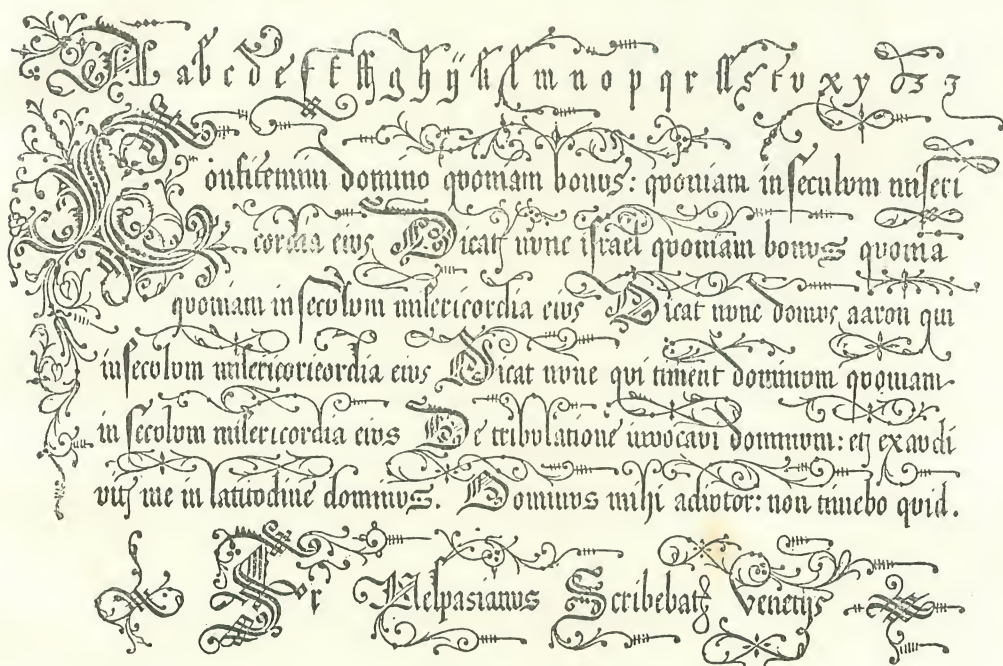 A a b c d e f f ff g h ij k l m n o p q r ſſ s t v x y z 3 3
Confitemini domino qvoniam bonvs: qvoniam in secvlvm miseri
cordia eivs Dicat nvnc israel qvoniam bonvs qvonia
qvoniam in secvlvm misericordia eivs Dicat nvnc domvs aaron qui
in secvlvm misericoricordia eivs Dicat nvnc qui timent dominvm qvoniam
in secvlvm misericordia eivs De tribvlatione invocavi dominvm: et exavdi
vit me in latitvdine dominvs. Dominvs mihi adivtor: non timebo quid.
Fr Vespasianvs Scribebat Venetijs